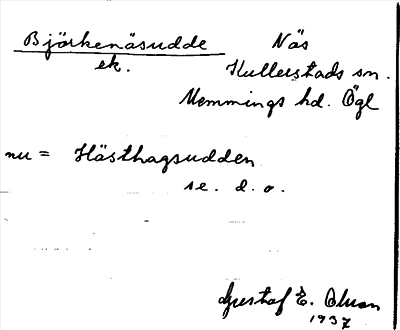 Björkenäsudde Näs
ek. Kullerstads sn.
Memmings hd. Ögl
nu = Hästhagsudden
se. d. o.
Gustaf E. Olson
1937